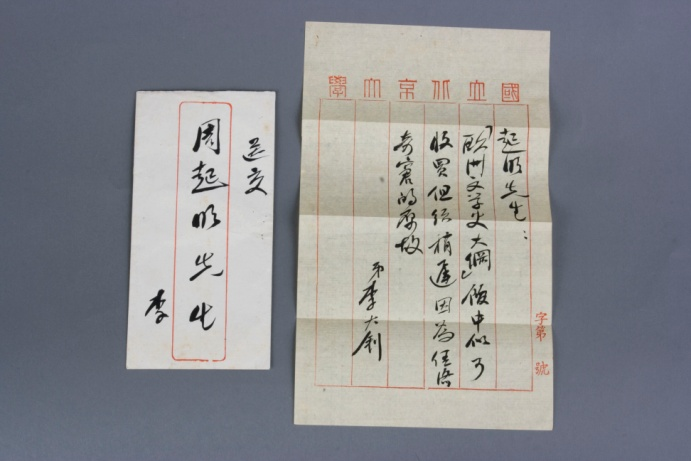 送交
周起明先生
李
國立北京大學
起明先生：
「欧洲文学史大綱」館中似可
收買但須稍遲因為經濟
奇窘的原故
弟李大釗
字第 號